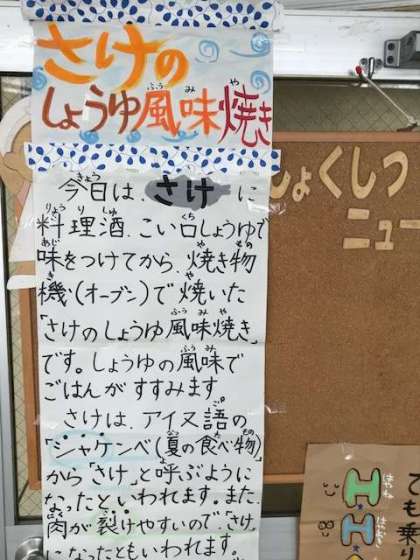 さけの
しょうゆ風味焼き
今日は、さけに
料理酒、こい口しょうゆで
味をつけてから、焼き物
機(オーブン)で焼いた
「さけのしょうゆ風味焼き」
です。しょうゆの風味で
ごはんがすすみます
さけは、アイヌ語の
「シャケンベ(夏の食べ物)」
から「さけ」と呼ぶように
なったといわれます。また、
肉が裂けやすいので、「さけ」
になったともいわれます。
しょくしつ
ニュー
でも乗
H
H